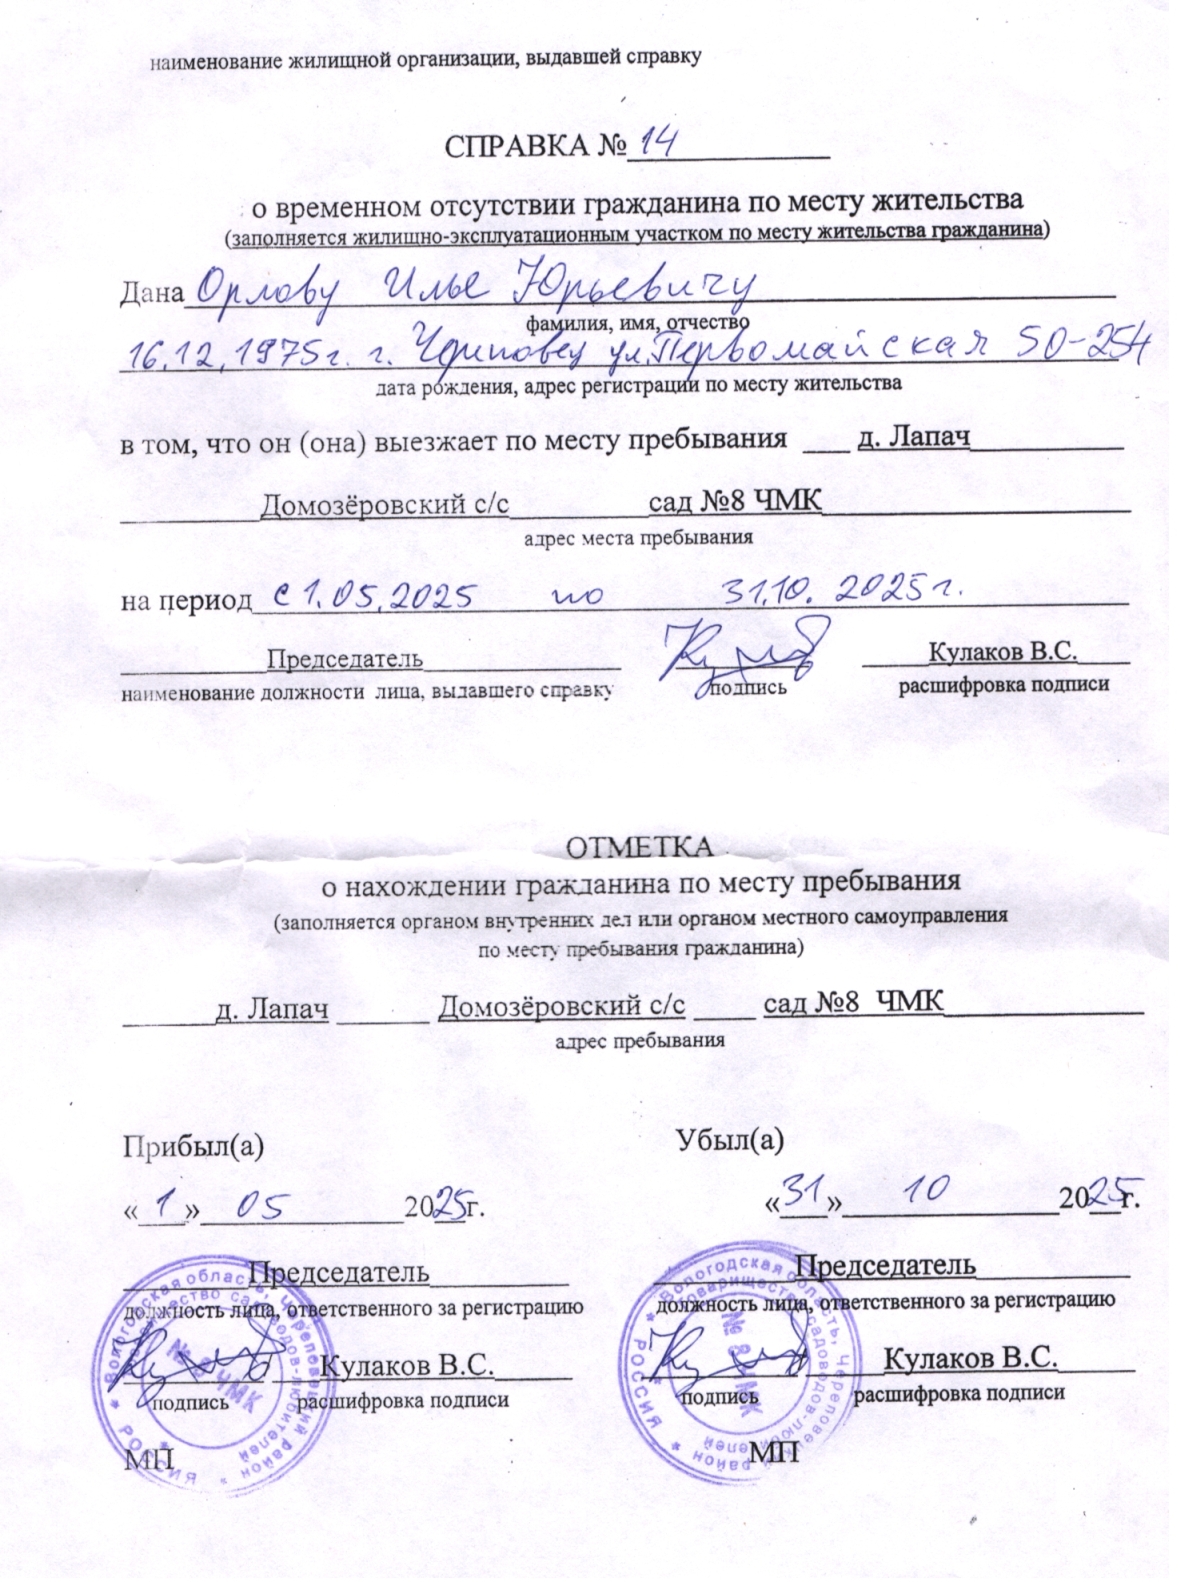 наименование жилищной организации, выдавшей справку
СПРАВКА № 14
о временном отсутствии гражданина по месту жительства
(заполняется жилищно-эксплуатационным участком по месту жительства гражданина)
Дана Орлову Илье Юрьевичу
фамилия, имя, отчество
16.12.1975г. г. Череповец ул.Первомайская 50-254
дата рождения, адрес регистрации по месту жительства
в том, что он (она) выезжает по месту пребывания д. Лапач
Домозёровский с/с сад №8 ЧМК
адрес места пребывания
на период с 1.05.2025 по 31.10.2025г.
Председатель Кулаков В.С.
наименование должности лица, выдавшего справку подпись расшифровка подписи
ОТМЕТКА
о нахождении гражданина по месту пребывания
(заполняется органом внутренних дел или органом местного самоуправления
по месту пребывания гражданина)
д. Лапач Домозёровский с/с сад №8 ЧМК
адрес пребывания
Прибыл(а) Убыл(а)
«1» 05 2025г. «31» 10 2025г.
Председатель Председатель
должность лица, ответственного за регистрацию должность лица, ответственного за регистрацию
Кулаков В.С. Кулаков В.С.
подпись расшифровка подписи подпись расшифровка подписи
МП МП
Вологодская область, Череповецкий район * РОССИЯ *
Товарищество садоводов-любителей
№ 8 ЧМК
Вологодская область, Череповецкий район * РОССИЯ *
Товарищество садоводов-любителей
№ 8 ЧМК